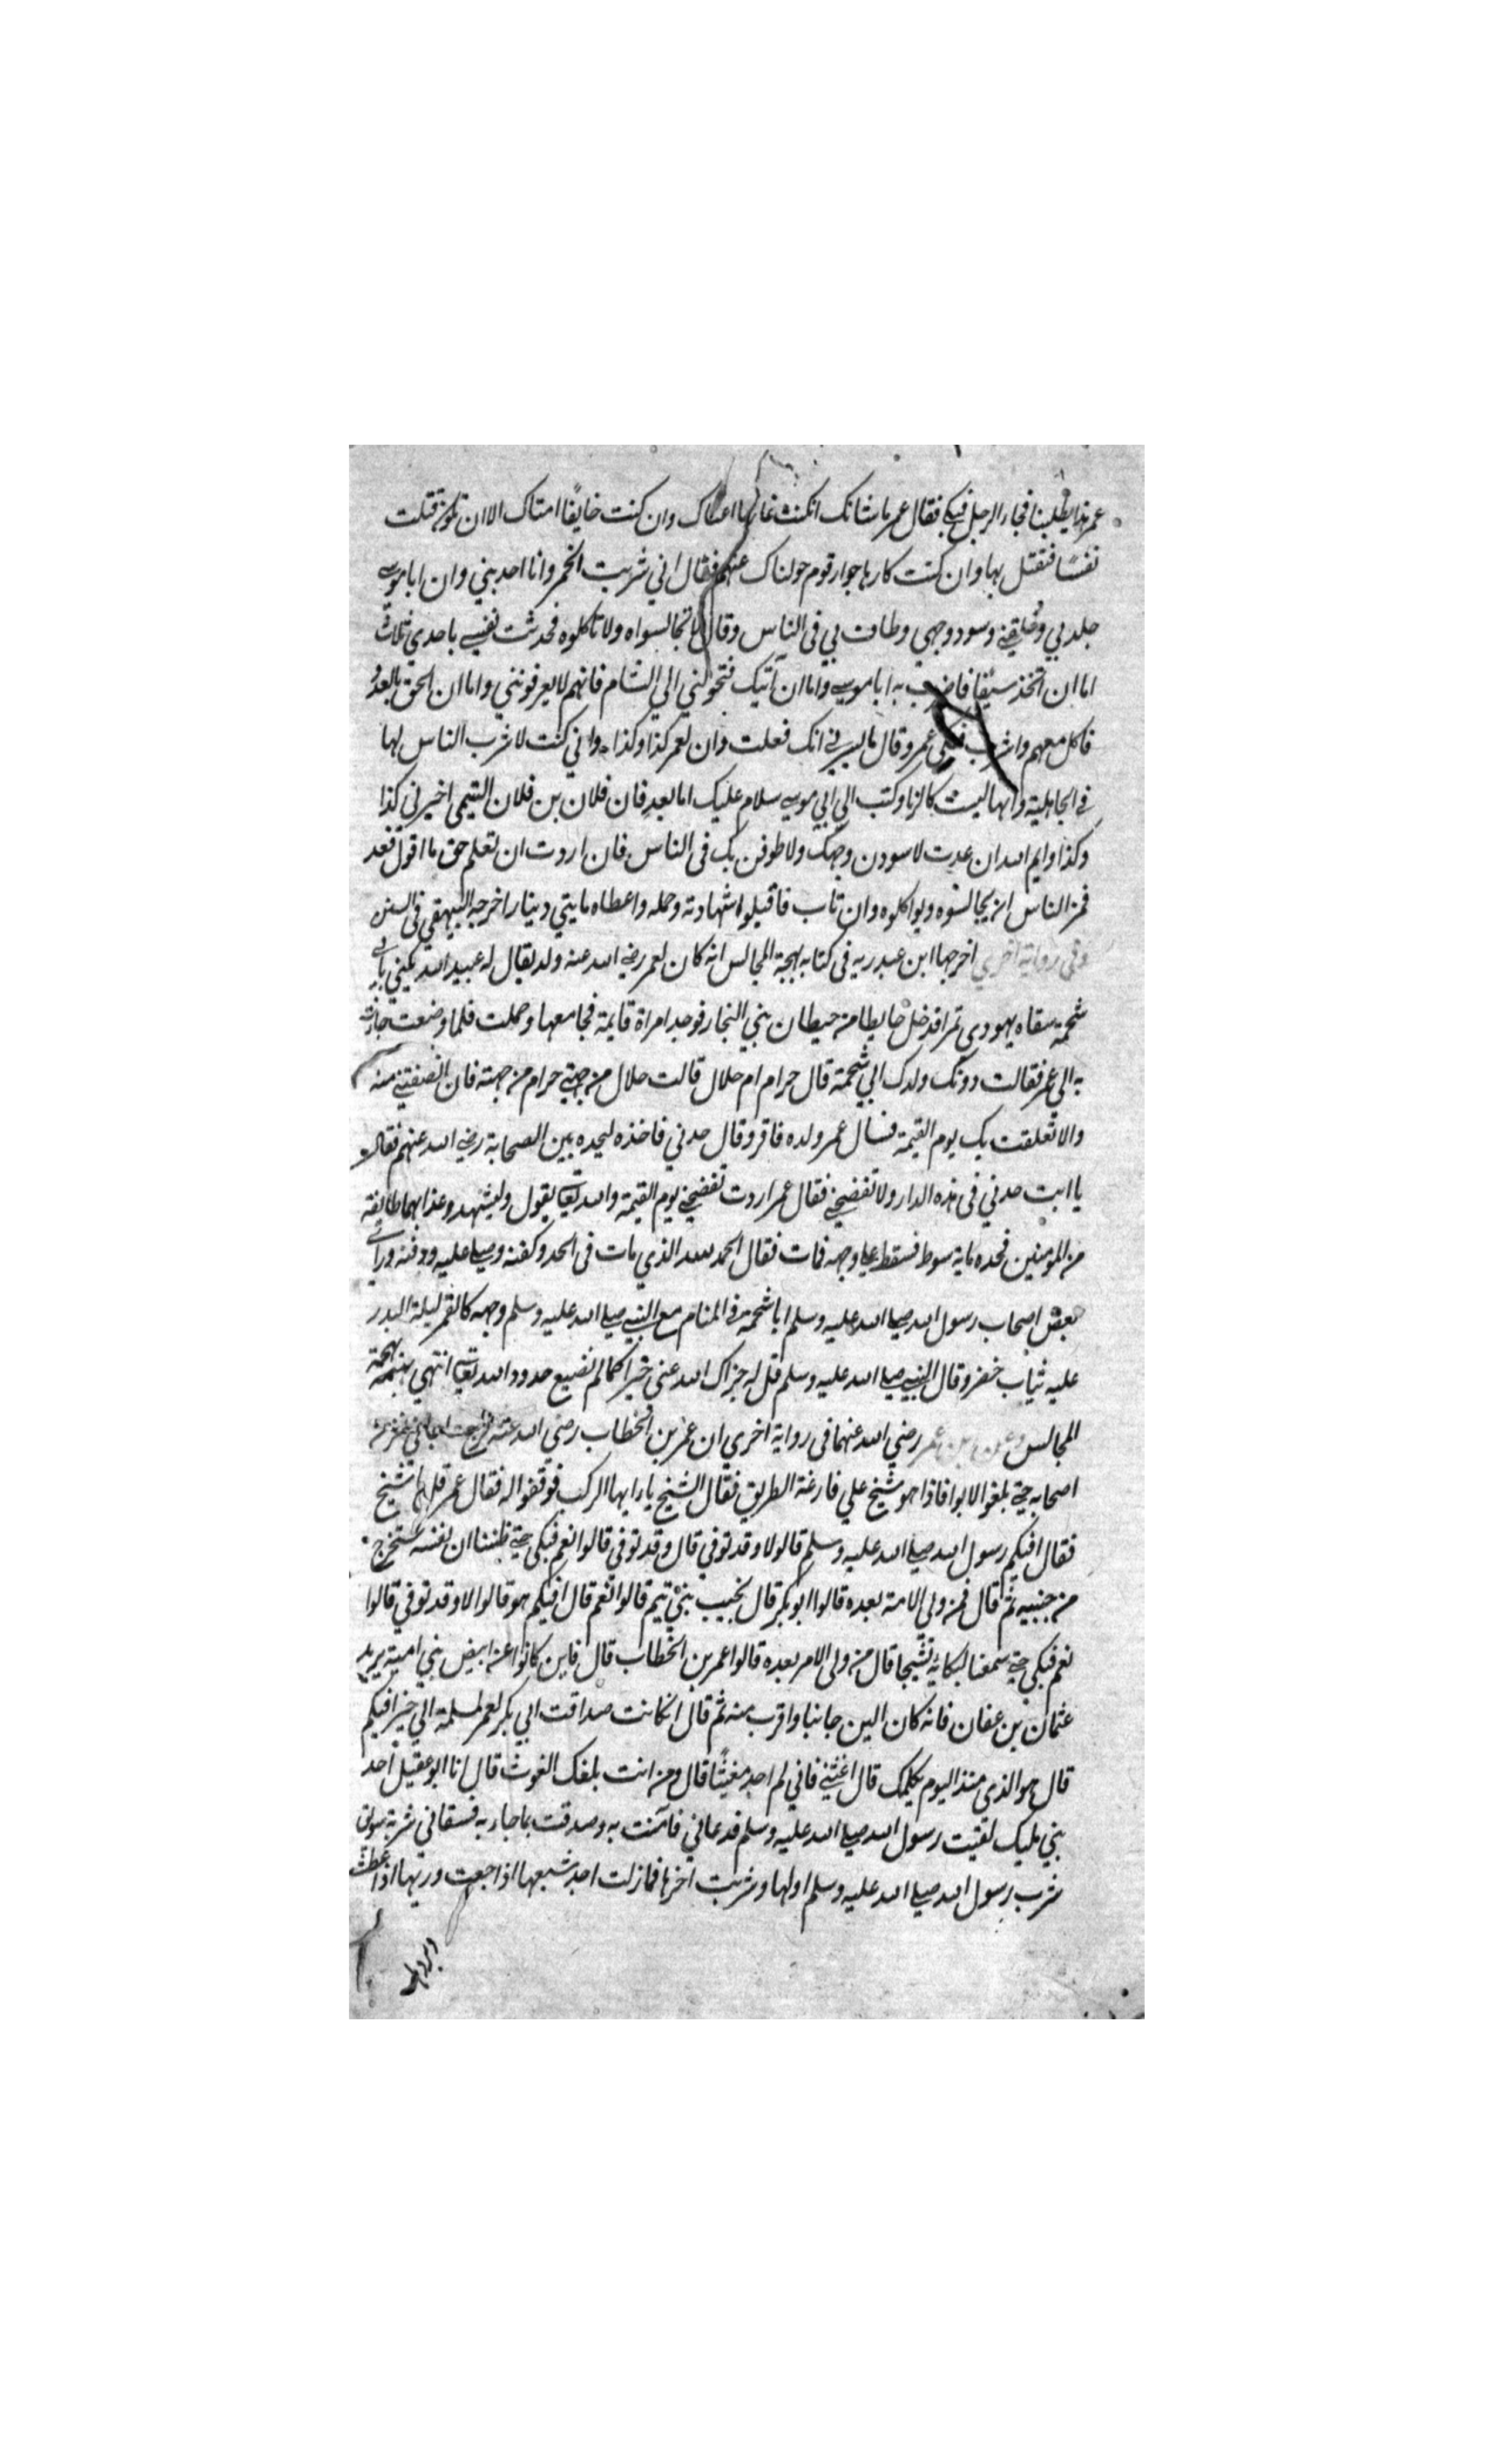 عمر هذا يطلبنا فجاء الرجل فبكي فقال عمر ما شانك ان كنت غارما اعناك وان كنت خايفًا امناك الا ان تكون قتلت
نفسًا فتقتل بها وان كنت كارها جوار قوم حولناك عنهم فقال اني شربت الخمر وانا احد بني وان ابا موسي
جلدني وحلقني وسود وجهي وطاف بي في الناس وقال لا تجالسواه ولا تاكلوه فحدثت نفسي باحدي ثلاث
اما ان اتخذ سيفا فاضرب به ابا موسي واما ان آتيك فتحولني الي الشام فانهم لا يعرفونني واما ان الحق بالعدو
فاكل معهم واشرب فبكي عمر وقال ما يسرني انك فعلت وان لعمر كذا وكذا واني كنت لا شرب الناس لها
في الجاهلية وانها ليست كالزنا وكتب الي ابي موسي سلام عليك اما بعد فان فلان بن فلان التيمي اخبرني كذا
وكذا وايم الله ان عدت لاسودن وجهك ولاطوفن بك في الناس فان اردت ان تعلم حق ما اقول فعد
فمر الناس ان يجالسوه ويواكلوه وان تاب فاقبلوا شهادته وحمله واعطاه مايتي دينار اخرجه البيهقي في السنن
وفي رواية اخري اخرجها ابن عبد ربه في كتابه بهجة المجالس انه كان لعمر رضي الله عنه ولد يقال له عبيد الله يكني بابي
شحمة سقاه يهودي تمرا فدخل حايطا من حيطان بني النجار فوجد امراة قايمة فجامعها وحملت فلما وضعت جاءت
به الي عمر فقالت دونك ولدك ابي شحمة قال حرام ام حلال قالت حلال من جهتي حرام من جهته فان انصفتني منه
والا تعلقت بك يوم القيمة فسال عمر ولده فاقر وقال حدني فاخذه ليحده بين الصحابة رضي الله عنهم فقال
يا ابت حدني في هذه الدار ولا تفضحني فقال عمر اردت تفضحني يوم القيمة والله تعالي يقول وليشهد وعذابهما طايفة
من المومنين فحده ماية سوط فسقط علي وجهه فمات فقال الحمد لله الذي مات في الحد وكفنه وصلي عليه ودفنه وراي
بعض اصحاب رسول الله صلي الله عليه وسلم ابا شحمة في المنام مع النبي صلي الله عليه وسلم وجهه كالقمر ليلة البدر
عليه ثياب خضر وقال النبي صلي الله عليه وسلم قل له جزاك الله عني خيرا كما لم تضيع حدود الله تعالي انتهي بهجة
المجالس وعن ابن عمر رضي الله عنهما في رواية اخري ان عمر بن الخطاب رضي الله عنه خرج
اصحابه حتي بلغوا الابوا فاذا هو شيخ علي قارعة الطريق فقال الشيخ يا ايها الركب فوقفوا له فقال عمر قل يا شيخ
فقال افيكم رسول الله صلي الله عليه وسلم قالو لا وقد توفي قال وقد توفي قالوا نعم فبكي حتي ظننا ان نفسه ستخرج
من جنبيه ثم قال فمن ولي الامة بعده قالوا ابو بكر قال نجيب بني تيم قالوا نعم قال افيكم هو قالوا لا وقد توفي قالوا
نعم فبكي حتي سمعنا لبكائه نشيجا قال من ولي الامر بعده قالوا عمر بن الخطاب قال فاين كانوا عن ابيض بني امية يريد
عثمان بن عفان فانه كان الين جانبا واقرب منه ثم قال ان كانت صداقت ابي بكر لعمر لمسلمة الي خير افيكم
قال هو الذي منذ اليوم يكلمك قال اغثني فاني لم اجد مغيثًا قال ومن انت بلغك الغوث قال انا ابو عقيل احد
بني مليك لقيت رسول الله صلي الله عليه وسلم فدعاني فآمنت به وصدقت بما جاء به فسقاني شربة سويق
شرب رسول الله صلي الله عليه وسلم اولها وشربت اخرها فما زلت اجد شبعها اذا جعت وريها اذا عطشت
وبردها